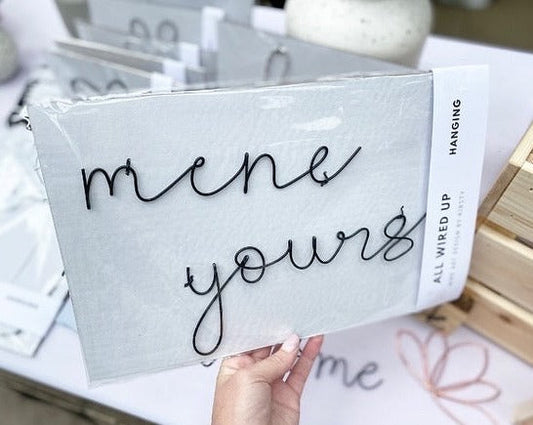 mene
yours
ALL WIRED UP
WIRE ART DESIGN BY KIRSTY
HANGING
me